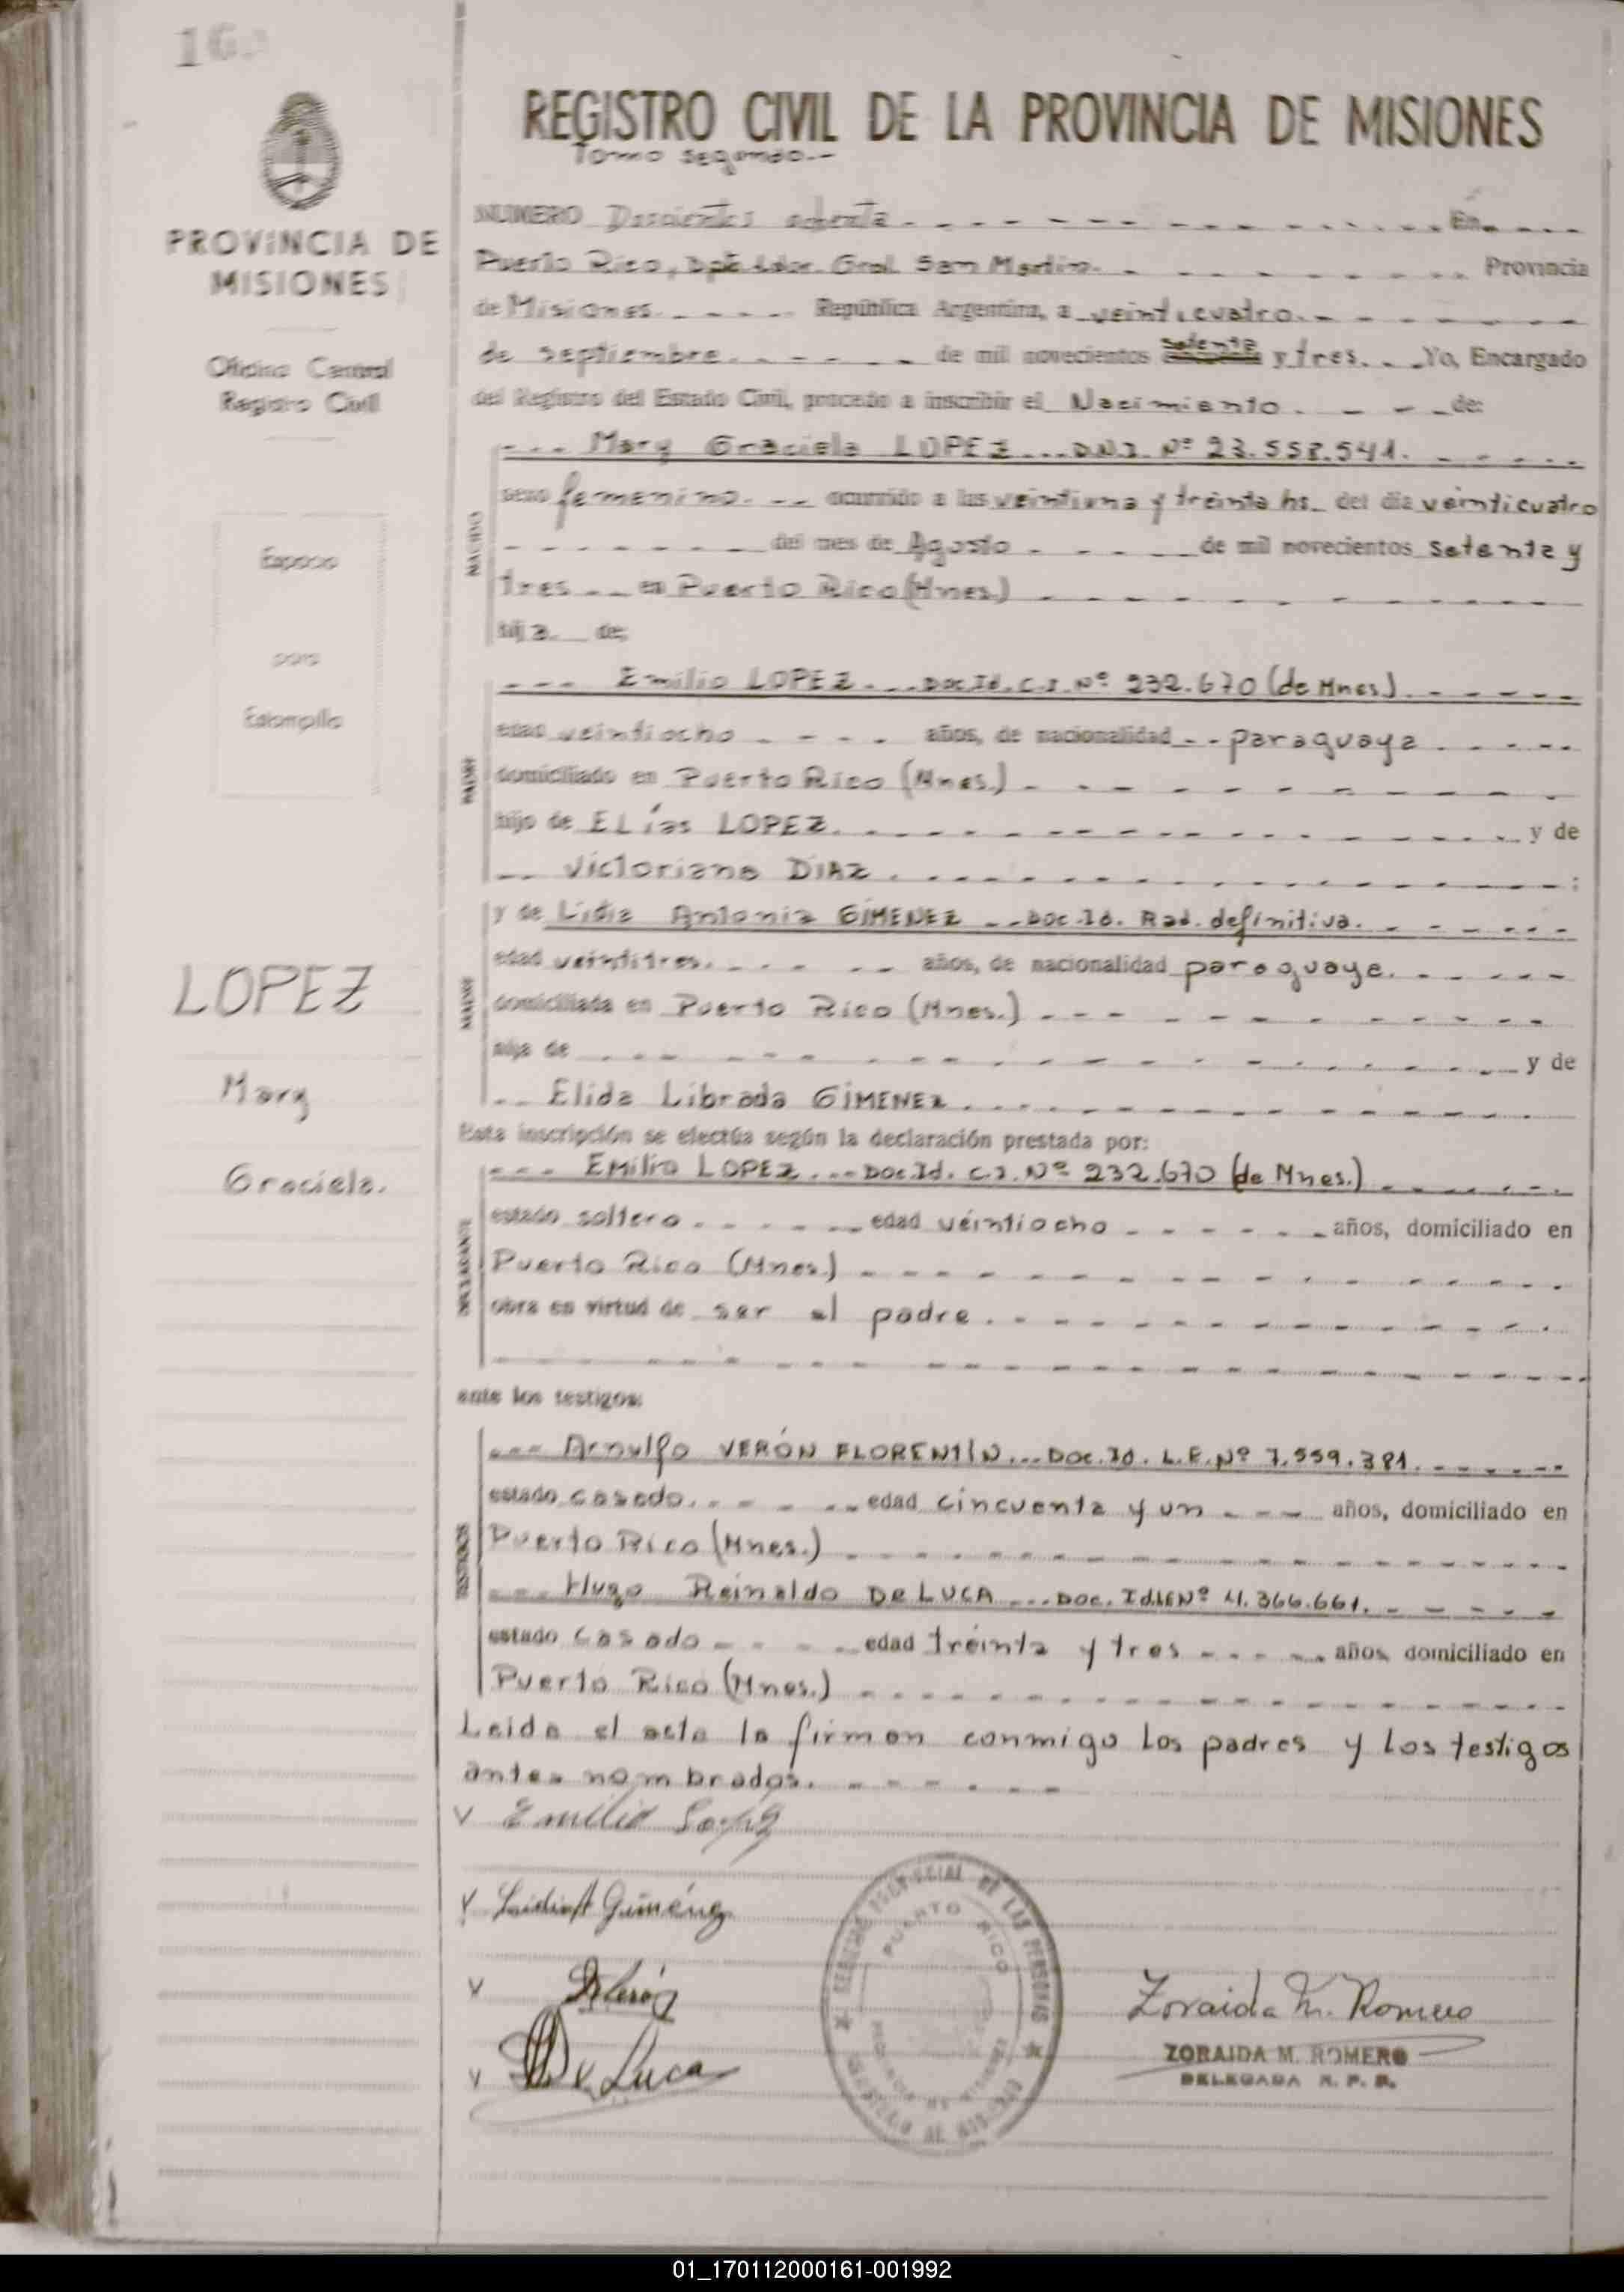 REGISTRO CIVIL DE LA PROVINCIA DE MISIONES
Tomo segundo.-
PROVINCIA DE
MISIONES
Oficina Central
Registro Civil
Espacio
para
Estampilla
LOPEZ
Mary
Graciela.
NUMERO Doscientos ochenta. En
Puerto Rico, Dpto Ldor. Gral. San Martin. Provincia
de Misiones. República Argentina, a veinticuatro.
de septiembre. de mil novecientos setenta y tres. Yo, Encargado
del Registro del Estado Civil, procedo a inscribir el Nacimiento. de:
NACIDO
Mary Graciela LOPEZ... D.N.I. Nº 23.558.541.
sexo femenino. ocurrido a las veintiuna y treinta hs. del día veinticuatro
del mes de Agosto de mil novecientos setenta y
tres en Puerto Rico (Mnes.)
hija de:
PADRE
Emilio LOPEZ... Doc.Id. C.I. Nº 232.670 (de Mnes.)
edad veintiocho años, de nacionalidad paraguaya
domiciliado en Puerto Rico (Mnes.)
hijo de ELías LOPEZ. y de
Victoriana DIAZ. :
MADRE
y de Lidia Antonia GIMENEZ Doc.Id. Rad. definitiva.
edad veintitres. años, de nacionalidad paraguaya.
domiciliada en Puerto Rico (Mnes.)
hija de y de
Elida Librada GIMENEZ.
Esta inscripción se efectúa según la declaración prestada por:
DECLARANTE
Emilio LOPEZ... Doc.Id. C.I. Nº 232.670 (de Mnes.)
estado soltero. edad veintiocho años, domiciliado en
Puerto Rico (Mnes.)
obra en virtud de ser el padre.
ante los testigos:
TESTIGOS
Arnulfo VERÓN FLORENTÍN... Doc.Id. L.E. Nº 7.559.381.
estado casado. edad cincuenta y un años, domiciliado en
Puerto Rico (Mnes.)
Hugo Reinaldo De LUCA ... Doc. Id.LE Nº 4.366.661.
estado casado edad treinta y tres años, domiciliado en
Puerto Rico (Mnes.)
Leida el acta la firman conmigo los padres y los testigos
antes nombrados.
Emilio Lopez
Lidia A Giménez
Verón
De Luca
PUERTO RICO
Zoraida M. Romero
ZORAIDA M. ROMERO
DELEGADA R. P. P.
01_170112000161-001992